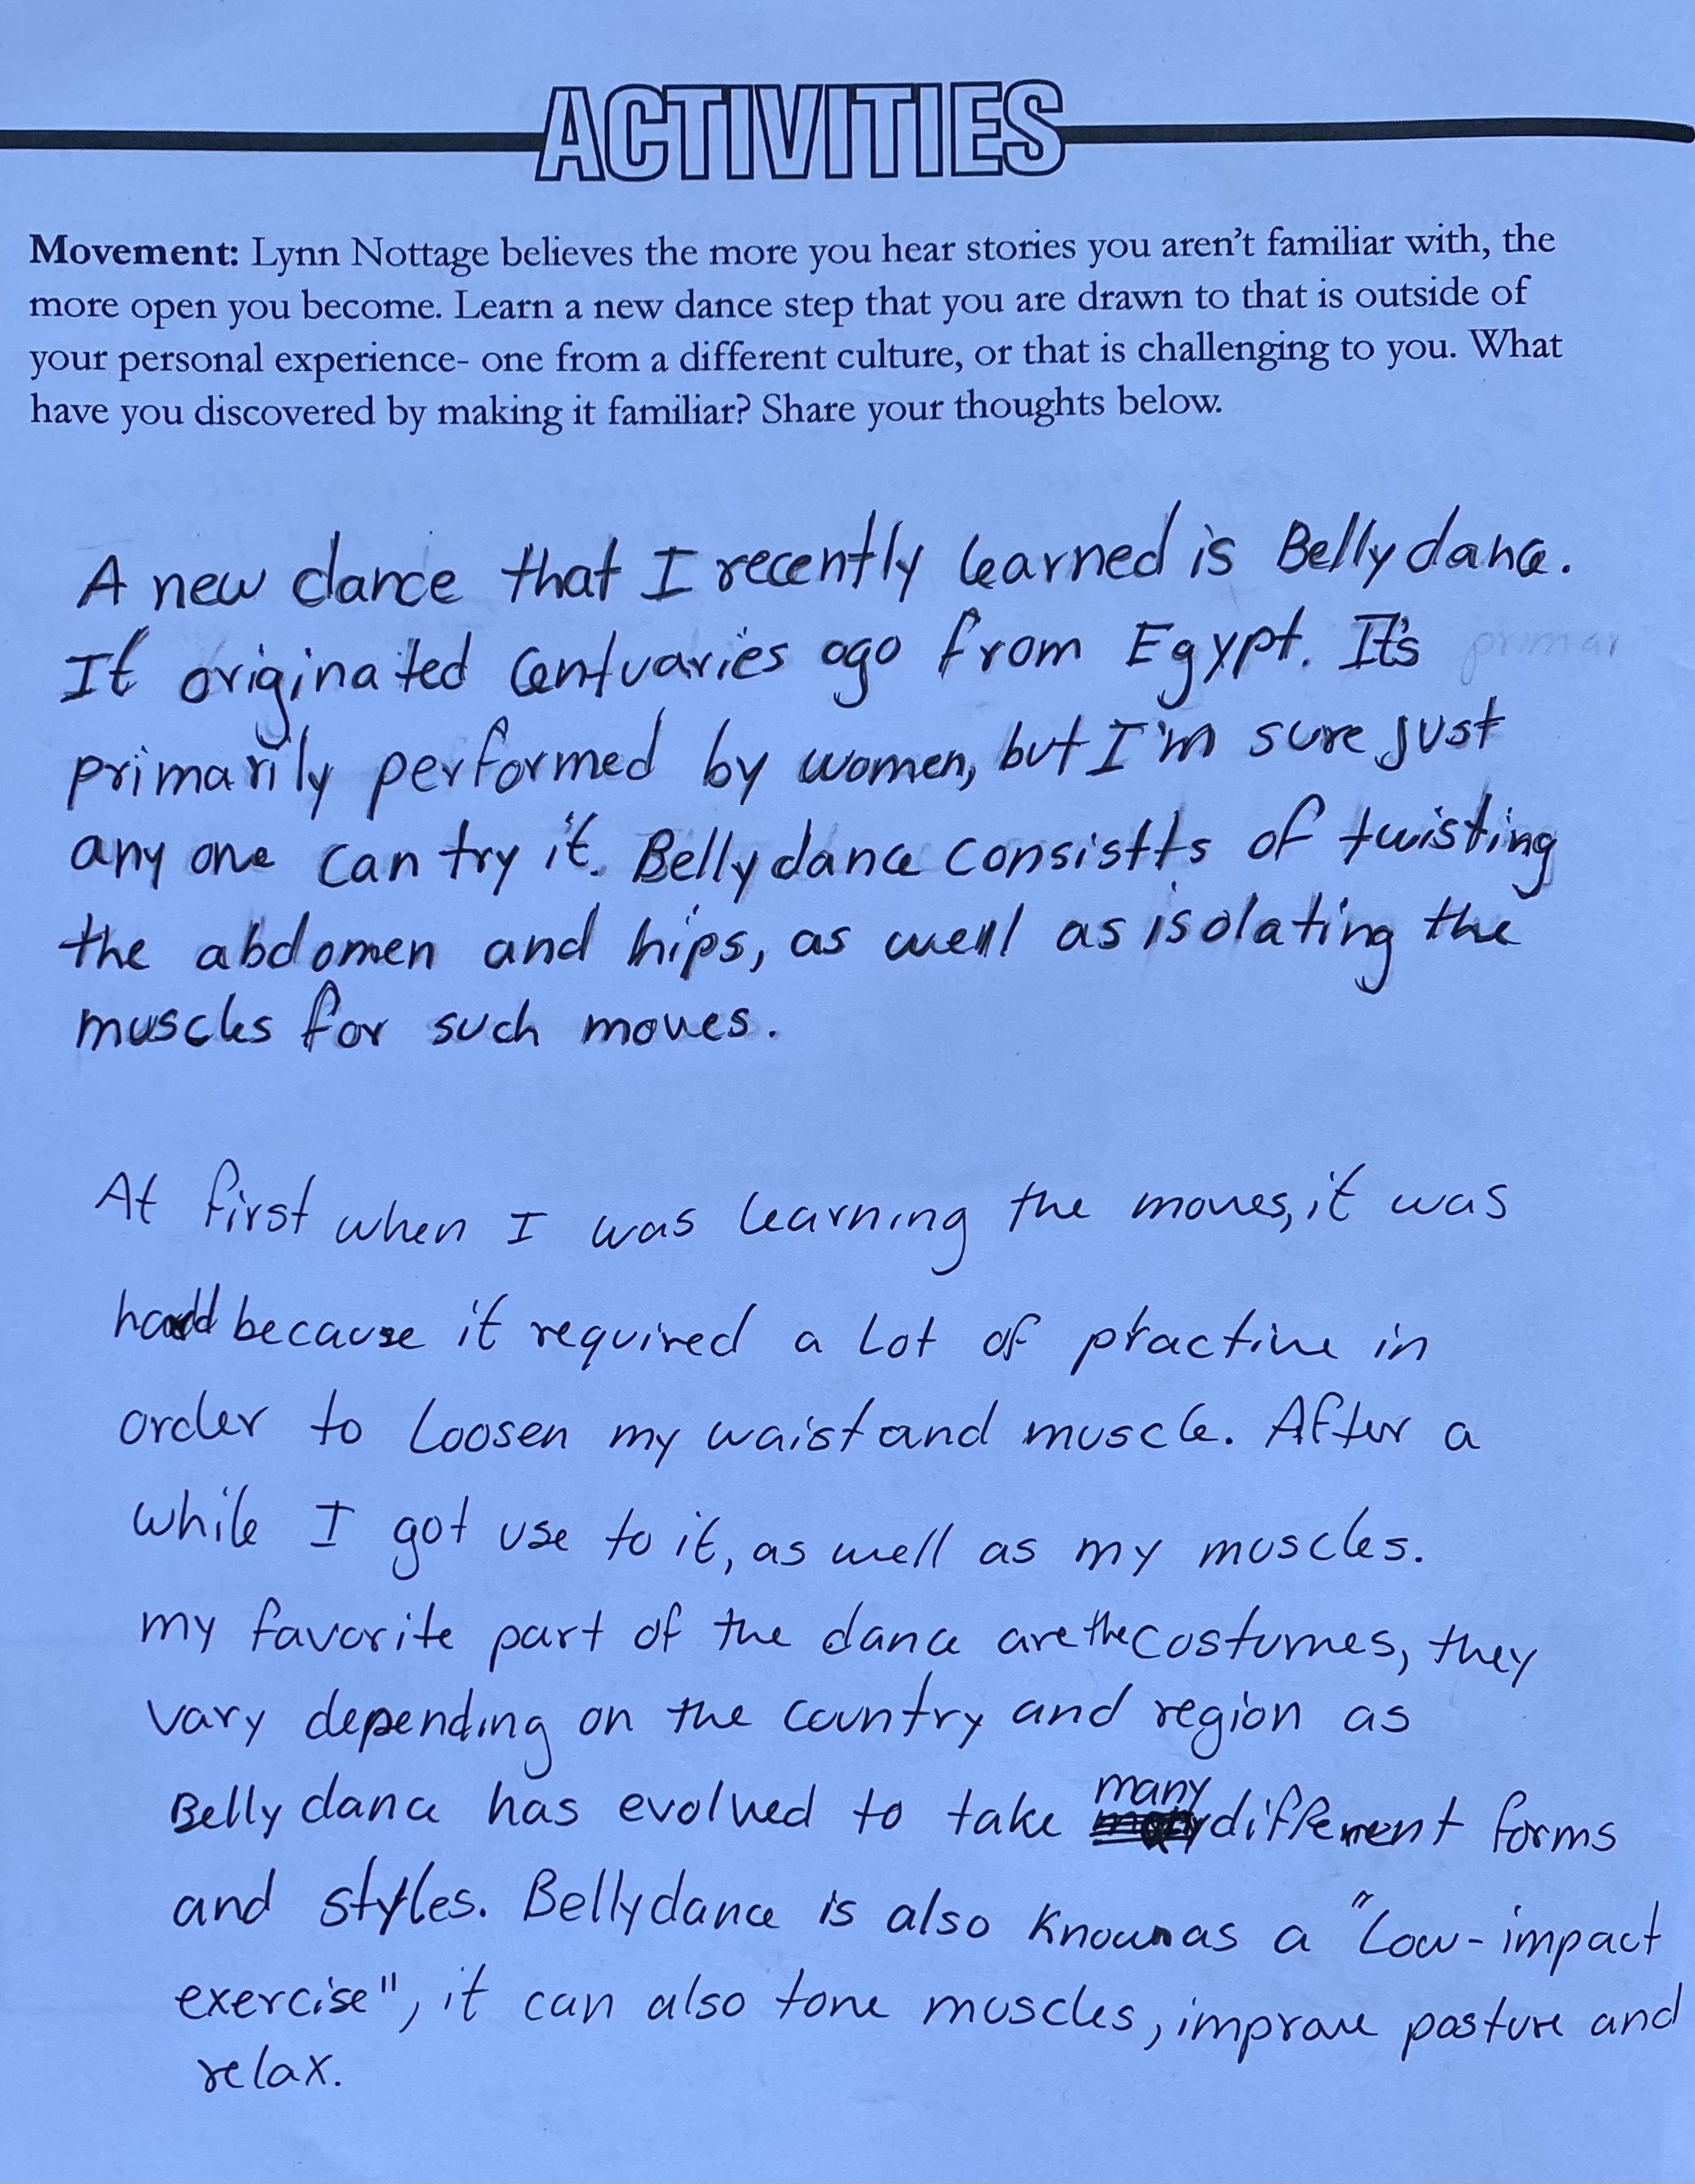 ACTIVITIES
Movement: Lynn Nottage believes the more you hear stories you aren't familiar with, the
more open you become. Learn a new dance step that you are drawn to that is outside of
your personal experience- one from a different culture, or that is challenging to you. What
have you discovered by making it familiar? Share your thoughts below.
A new dance that I recently learned is Belly dance.
It originated Centuaries ago from Egypt. It's primar
primarily performed by women, but I'm sure just
any one can try it. Belly dance consistts of twisting
the abdomen and hips, as well as isolating the
muscles for such moves.
At first when I was learning the moves, it was
hard because it required a lot of practice in
order to loosen my waist and muscle. After a
while I got use to it, as well as my muscles.
my favorite part of the dance are the costumes, they
vary depending on the country and region as
many
Belly dance has evolved to take different forms
and styles. Belly dance is also known as a "low-impact
exercise", it can also tone muscles, improve posture and
relax.